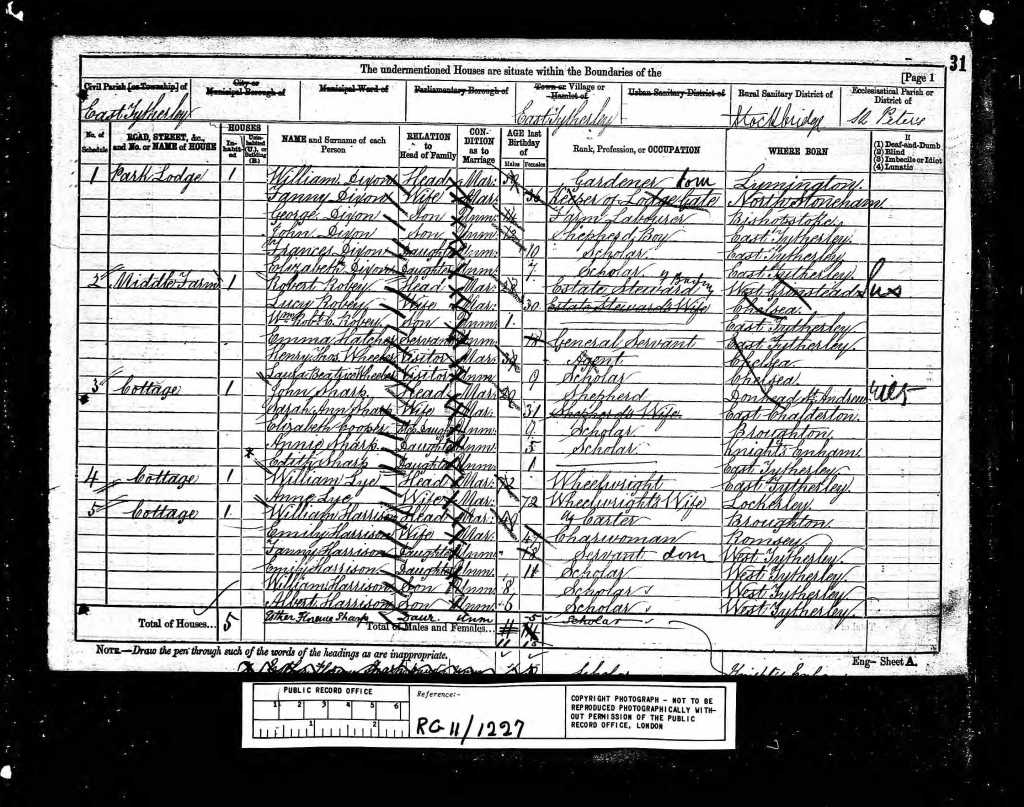 31
The undermentioned Houses are situate within the Boundaries of the
[Page 1
Civil Parish [or Township] of
City or Municipal Borough of
Municipal Ward of
Parliamentary Borough of
Town or Village or Hamlet of
Urban Sanitary District of
Rural Sanitary District of
Ecclesiastical Parish or District of
East Tytherley
East Tytherley
Stockbridge
St Peters
No. of Schedule
ROAD, STREET, &c., and No. or NAME of HOUSE
HOUSES
Inhabited
Uninhabited (U.), or Building (B.)
NAME and Surname of each Person
RELATION to Head of Family
CONDITION as to Marriage
AGE last Birthday of
Males
Females
Rank, Profession, or OCCUPATION
WHERE BORN
If
(1) Deaf-and-Dumb
(2) Blind
(3) Imbecile or Idiot
(4) Lunatic
1 Park Lodge 1 William Dixon Head Mar: Gardener Dom Lymington
Fanny Dixon Wife Mar: 36 Keeper of Lodge Gate North Stoneham
George Dixon Son Unm: 14 Farm Labourer Bishopstoke
John Dixon Son Unm: 12 Shepherd Boy East Tytherley
Frances Dixon Daughter Unm: 10 Scholar East Tytherley
Elizabeth Dixon Daughter Unm: 7 Scholar East Tytherley
2 Middle Farm 1 Robert Robey Head Mar: Estate Steward West Grinstead
Lucy Robey Wife Mar: 30 Estate Stewards Wife Chelsea
Wm Robt C. Robey Son Unm: 1 East Tytherley
Emma Hatcher Servant Unm: General Servant East Tytherley
Henry Thos Wheeler Visitor Mar: Agent Chelsea
Laura Beatrice Wheeler Visitor Unm 9 Scholar Chelsea
3 Cottage 1 John Sharp Head Mar: Shepherd Donhead St Andrew Wilts
Sarah Ann Sharp Wife Mar: 31 Shepherds Wife East Chalderton
Elizabeth Cooper Daughter Unm: 9 Scholar Broughton
Annie Sharp Daughter Unm: 5 Scholar Knights Enham
Edith Sharp Daughter Unm: 1 East Tytherley
4 Cottage 1 William Lye Head Mar: Wheelwright East Tytherley
Anne Lye Wife Mar: 72 Wheelwright's Wife Lockerley
5 Cottage 1 William Harrison Head Mar: Ag Carter Broughton
Emily Harrison Wife Mar: Charwoman Romsey
Fanny Harrison Daughter Unm: Servant Dom West Tytherley
Emily Harrison Daughter Unm: 11 Scholar West Tytherley
William Harrison Son Unm: 8 Scholar West Tytherley
Albert Harrison Son Unm: 6 Scholar West Tytherley
Esther Florence Sharp Daur. Unm 5 Scholar
Total of Houses... 5
Total of Males and Females...
NOTE.—Draw the pen through such of the words of the headings as are inappropriate.
Eng— Sheet A.
PUBLIC RECORD OFFICE
1 2 3 4 5 6
1 2
Reference:-
RG 11/1227
COPYRIGHT PHOTOGRAPH - NOT TO BE
REPRODUCED PHOTOGRAPHICALLY WITH-
OUT PERMISSION OF THE PUBLIC
RECORD OFFICE, LONDON